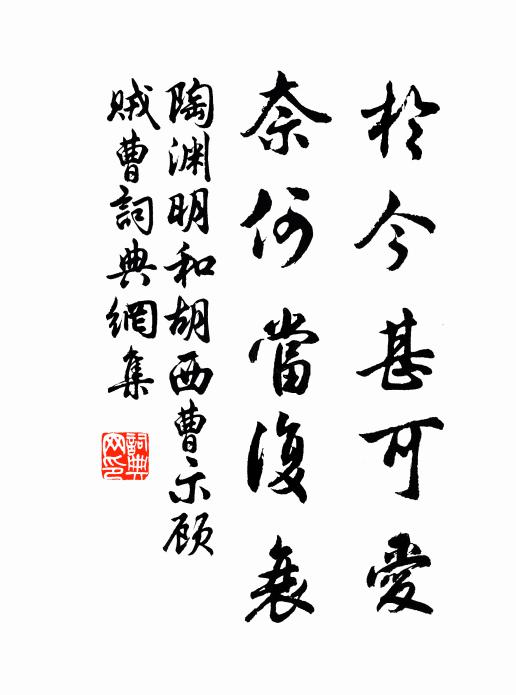 於今甚可愛
奈何當復衰
陶淵明和胡西曹示顧
賊曹詞典網集
詞典
网印